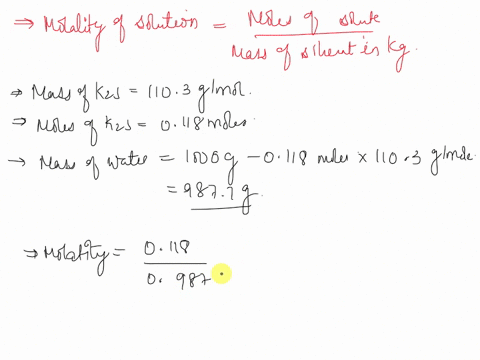 ⇒ Molality of solution = Moles of solute
Mass of solvent in kg.
→ Mass of K2S = 110.3 g/mol.
⇒ Moles of K2S = 0.118 moles.
→ Mass of water = 1000g - 0.118 moles × 110.3 g/mole
= 987.7 g.
⇒ Molality = 0.118
0.987